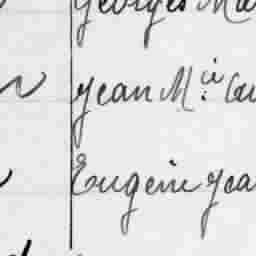 Georges Ma
Jean M.ie Cau
Eugène Jea